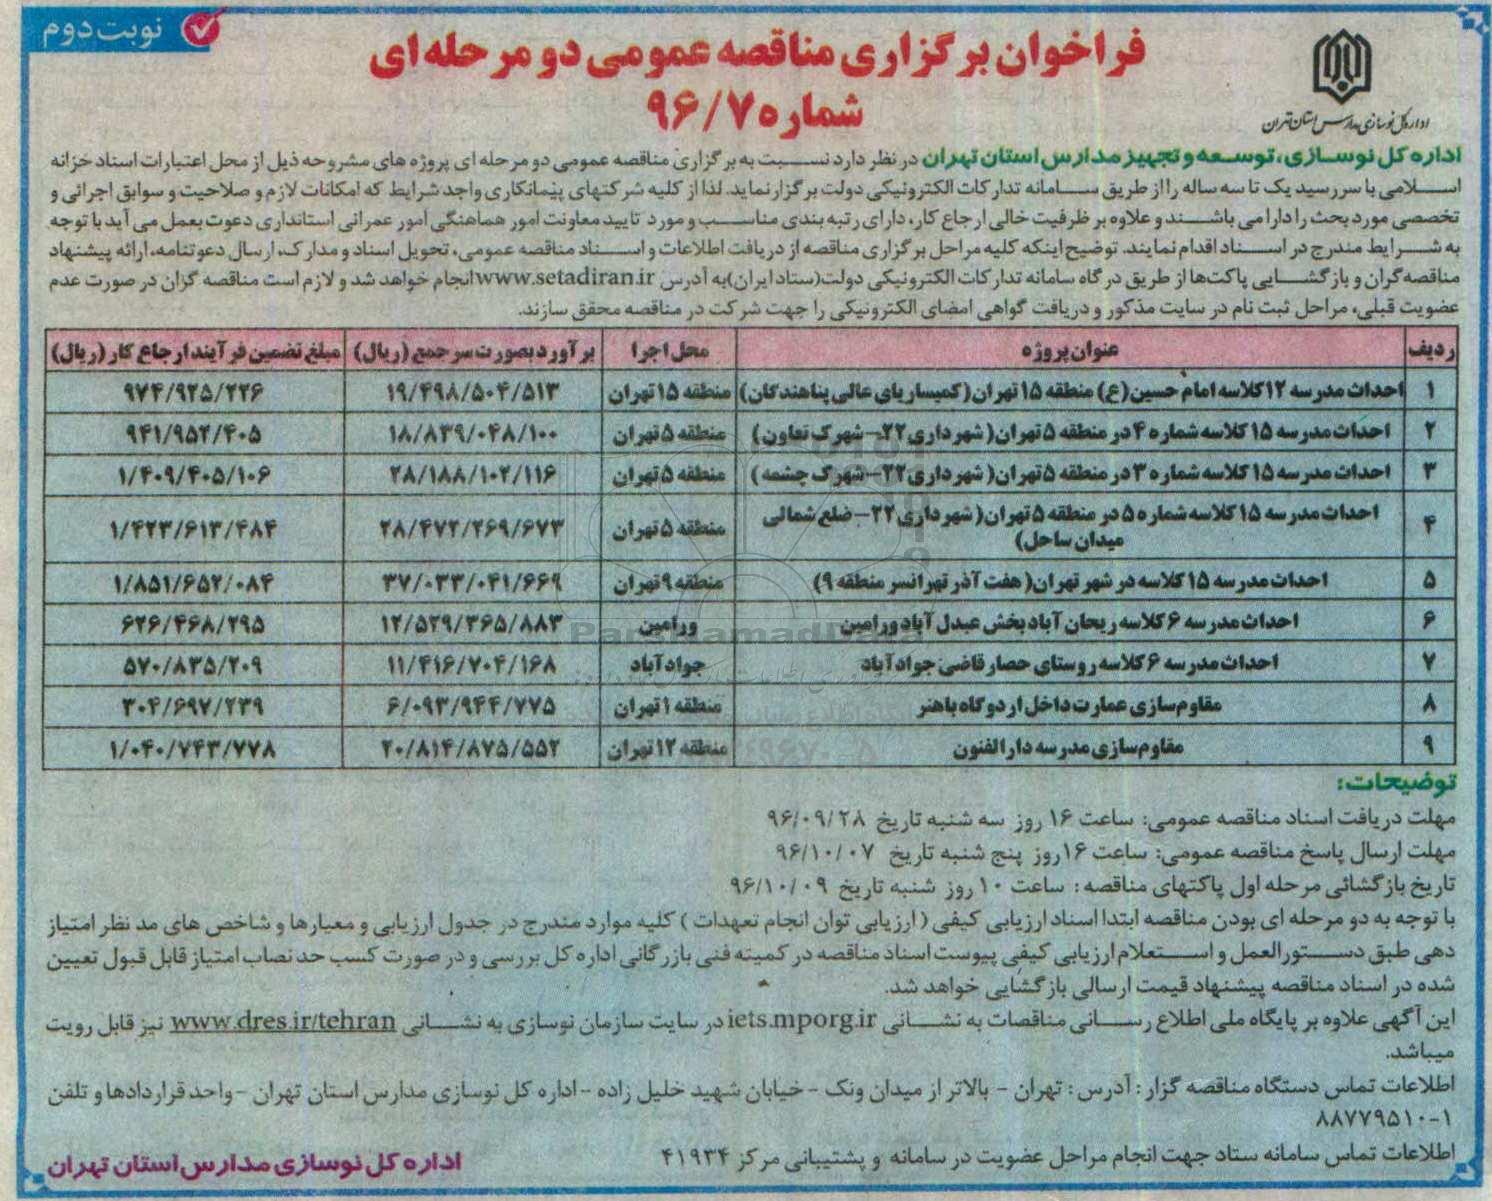 نوبت دوم
فراخوان برگزاری مناقصه عمومی دو مرحله ای
شماره ۹۶/۷
اداره کل نوسازی مدارس استان تهران
اداره کل نوسازی، توسعه و تجهیز مدارس استان تهران در نظر دارد نسبت به برگزاری مناقصه عمومی دو مرحله ای پروژه های مشروحه ذیل از محل اعتبارات اسناد خزانه
اسلامی با سررسید یک تا سه ساله را از طریق سامانه تدارکات الکترونیکی دولت برگزار نماید. لذا از کلیه شرکتهای پیمانکاری واجد شرایط که امکانات لازم و صلاحیت و سوابق اجرائی و
تخصصی مورد بحث را دارا می باشند و علاوه بر ظرفیت خالی ارجاع کار، دارای رتبه بندی مناسب و مورد تایید معاونت امور هماهنگی امور عمرانی استانداری دعوت بعمل می آید با توجه
به شرایط مندرج در اسناد اقدام نمایند. توضیح اینکه کلیه مراحل برگزاری مناقصه از دریافت اطلاعات و اسناد مناقصه عمومی، تحویل اسناد و مدارک، ارسال دعوتنامه، ارائه پیشنهاد
مناقصه گران و بازگشایی پاکت‌ها از طریق درگاه سامانه تدارکات الکترونیکی دولت(ستاد ایران)به آدرس www.setadiran.ir انجام خواهد شد و لازم است مناقصه گران در صورت عدم
عضویت قبلی، مراحل ثبت نام در سایت مذکور و دریافت گواهی امضای الکترونیکی را جهت شرکت در مناقصه محقق سازند.
ردیف عنوان پروژه محل اجرا برآورد بصورت سرجمع (ریال) مبلغ تضمین فرآیند ارجاع کار (ریال)
۱ احداث مدرسه ۱۲ کلاسه امام حسین(ع) منطقه ۱۵ تهران (کمیساریای عالی پناهندگان) منطقه ۱۵ تهران ۱۹/۴۹۸/۵۰۴/۵۱۳ ۹۷۴/۹۲۵/۲۲۶
۲ احداث مدرسه ۱۵ کلاسه شماره ۴ در منطقه ۵ تهران( شهرداری ۲۲- شهرک تعاون) منطقه ۵ تهران ۱۸/۸۳۹/۰۴۸/۱۰۰ ۹۴۱/۹۵۲/۴۰۵
۳ احداث مدرسه ۱۵ کلاسه شماره ۳ در منطقه ۵ تهران( شهرداری ۲۲- شهرک چشمه) منطقه ۵ تهران ۲۸/۱۸۸/۱۰۲/۱۱۶ ۱/۴۰۹/۴۰۵/۱۰۶
۴ احداث مدرسه ۱۵ کلاسه شماره ۵ در منطقه ۵ تهران( شهرداری ۲۲- ضلع شمالی میدان ساحل) منطقه ۵ تهران ۲۸/۴۷۲/۲۶۹/۶۷۳ ۱/۴۲۳/۶۱۳/۴۸۴
۵ احداث مدرسه ۱۵ کلاسه در شهر تهران( هفت آذر تهرانسر منطقه ۹) منطقه ۹ تهران ۳۷/۰۳۳/۰۴۱/۶۶۹ ۱/۸۵۱/۶۵۲/۰۸۴
۶ احداث مدرسه ۶ کلاسه ریحان آباد بخش عبدل آباد ورامین ورامین ۱۲/۵۲۹/۳۶۵/۸۸۳ ۶۲۶/۴۶۸/۲۹۵
۷ احداث مدرسه ۶ کلاسه روستای حصار قاضی جوادآباد جوادآباد ۱۱/۴۱۶/۷۰۴/۱۶۸ ۵۷۰/۸۳۵/۲۰۹
۸ مقاوم‌سازی عمارت داخل اردوگاه باهنر منطقه ۱ تهران ۶/۰۹۳/۹۴۴/۷۷۵ ۳۰۴/۶۹۷/۲۳۹
۹ مقاوم‌سازی مدرسه دارالفنون منطقه ۱۲ تهران ۲۰/۸۱۴/۸۷۵/۵۵۲ ۱/۰۴۰/۷۴۳/۷۷۸
توضیحات:
مهلت دریافت اسناد مناقصه عمومی: ساعت ۱۶ روز سه شنبه تاریخ ۹۶/۰۹/۲۸
مهلت ارسال پاسخ مناقصه عمومی: ساعت ۱۶روز پنج شنبه تاریخ ۹۶/۱۰/۰۷
تاریخ بازگشائی مرحله اول پاکتهای مناقصه : ساعت ۱۰ روز شنبه تاریخ ۹۶/۱۰/۰۹
با توجه به دو مرحله ای بودن مناقصه ابتدا اسناد ارزیابی کیفی ( ارزیابی توان انجام تعهدات ) کلیه موارد مندرج در جدول ارزیابی و معیارها و شاخص های مد نظر امتیاز
دهی طبق دستورالعمل و استعلام ارزیابی کیفی پیوست اسناد مناقصه در کمیته فنی بازرگانی اداره کل بررسی و در صورت کسب حد نصاب امتیاز قابل قبول تعیین
شده در اسناد مناقصه پیشنهاد قیمت ارسالی بازگشایی خواهد شد.
این آگهی علاوه بر پایگاه ملی اطلاع رسانی مناقصات به نشانی iets.mporg.ir در سایت سازمان نوسازی به نشانی www.dres.ir/tehran نیز قابل رویت
میباشد.
اطلاعات تماس دستگاه مناقصه گزار : آدرس : تهران - بالاتر از میدان ونک - خیابان شهید خلیل زاده - اداره کل نوسازی مدارس استان تهران - واحد قراردادها و تلفن
۸۸۷۷۹۵۱۰-۱
اطلاعات تماس سامانه ستاد جهت انجام مراحل عضویت در سامانه و پشتیبانی مرکز ۴۱۹۳۴
اداره کل نوسازی مدارس استان تهران